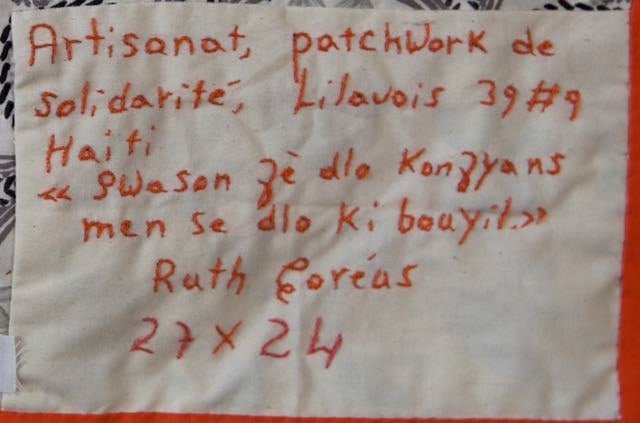 Artisanat, patchWork de
solidarité, Lilavois 39#9
Haiti
« Pwason fè dlo Konfyans
men se dlo Ki bouyil.»
Ruth
27 x 24